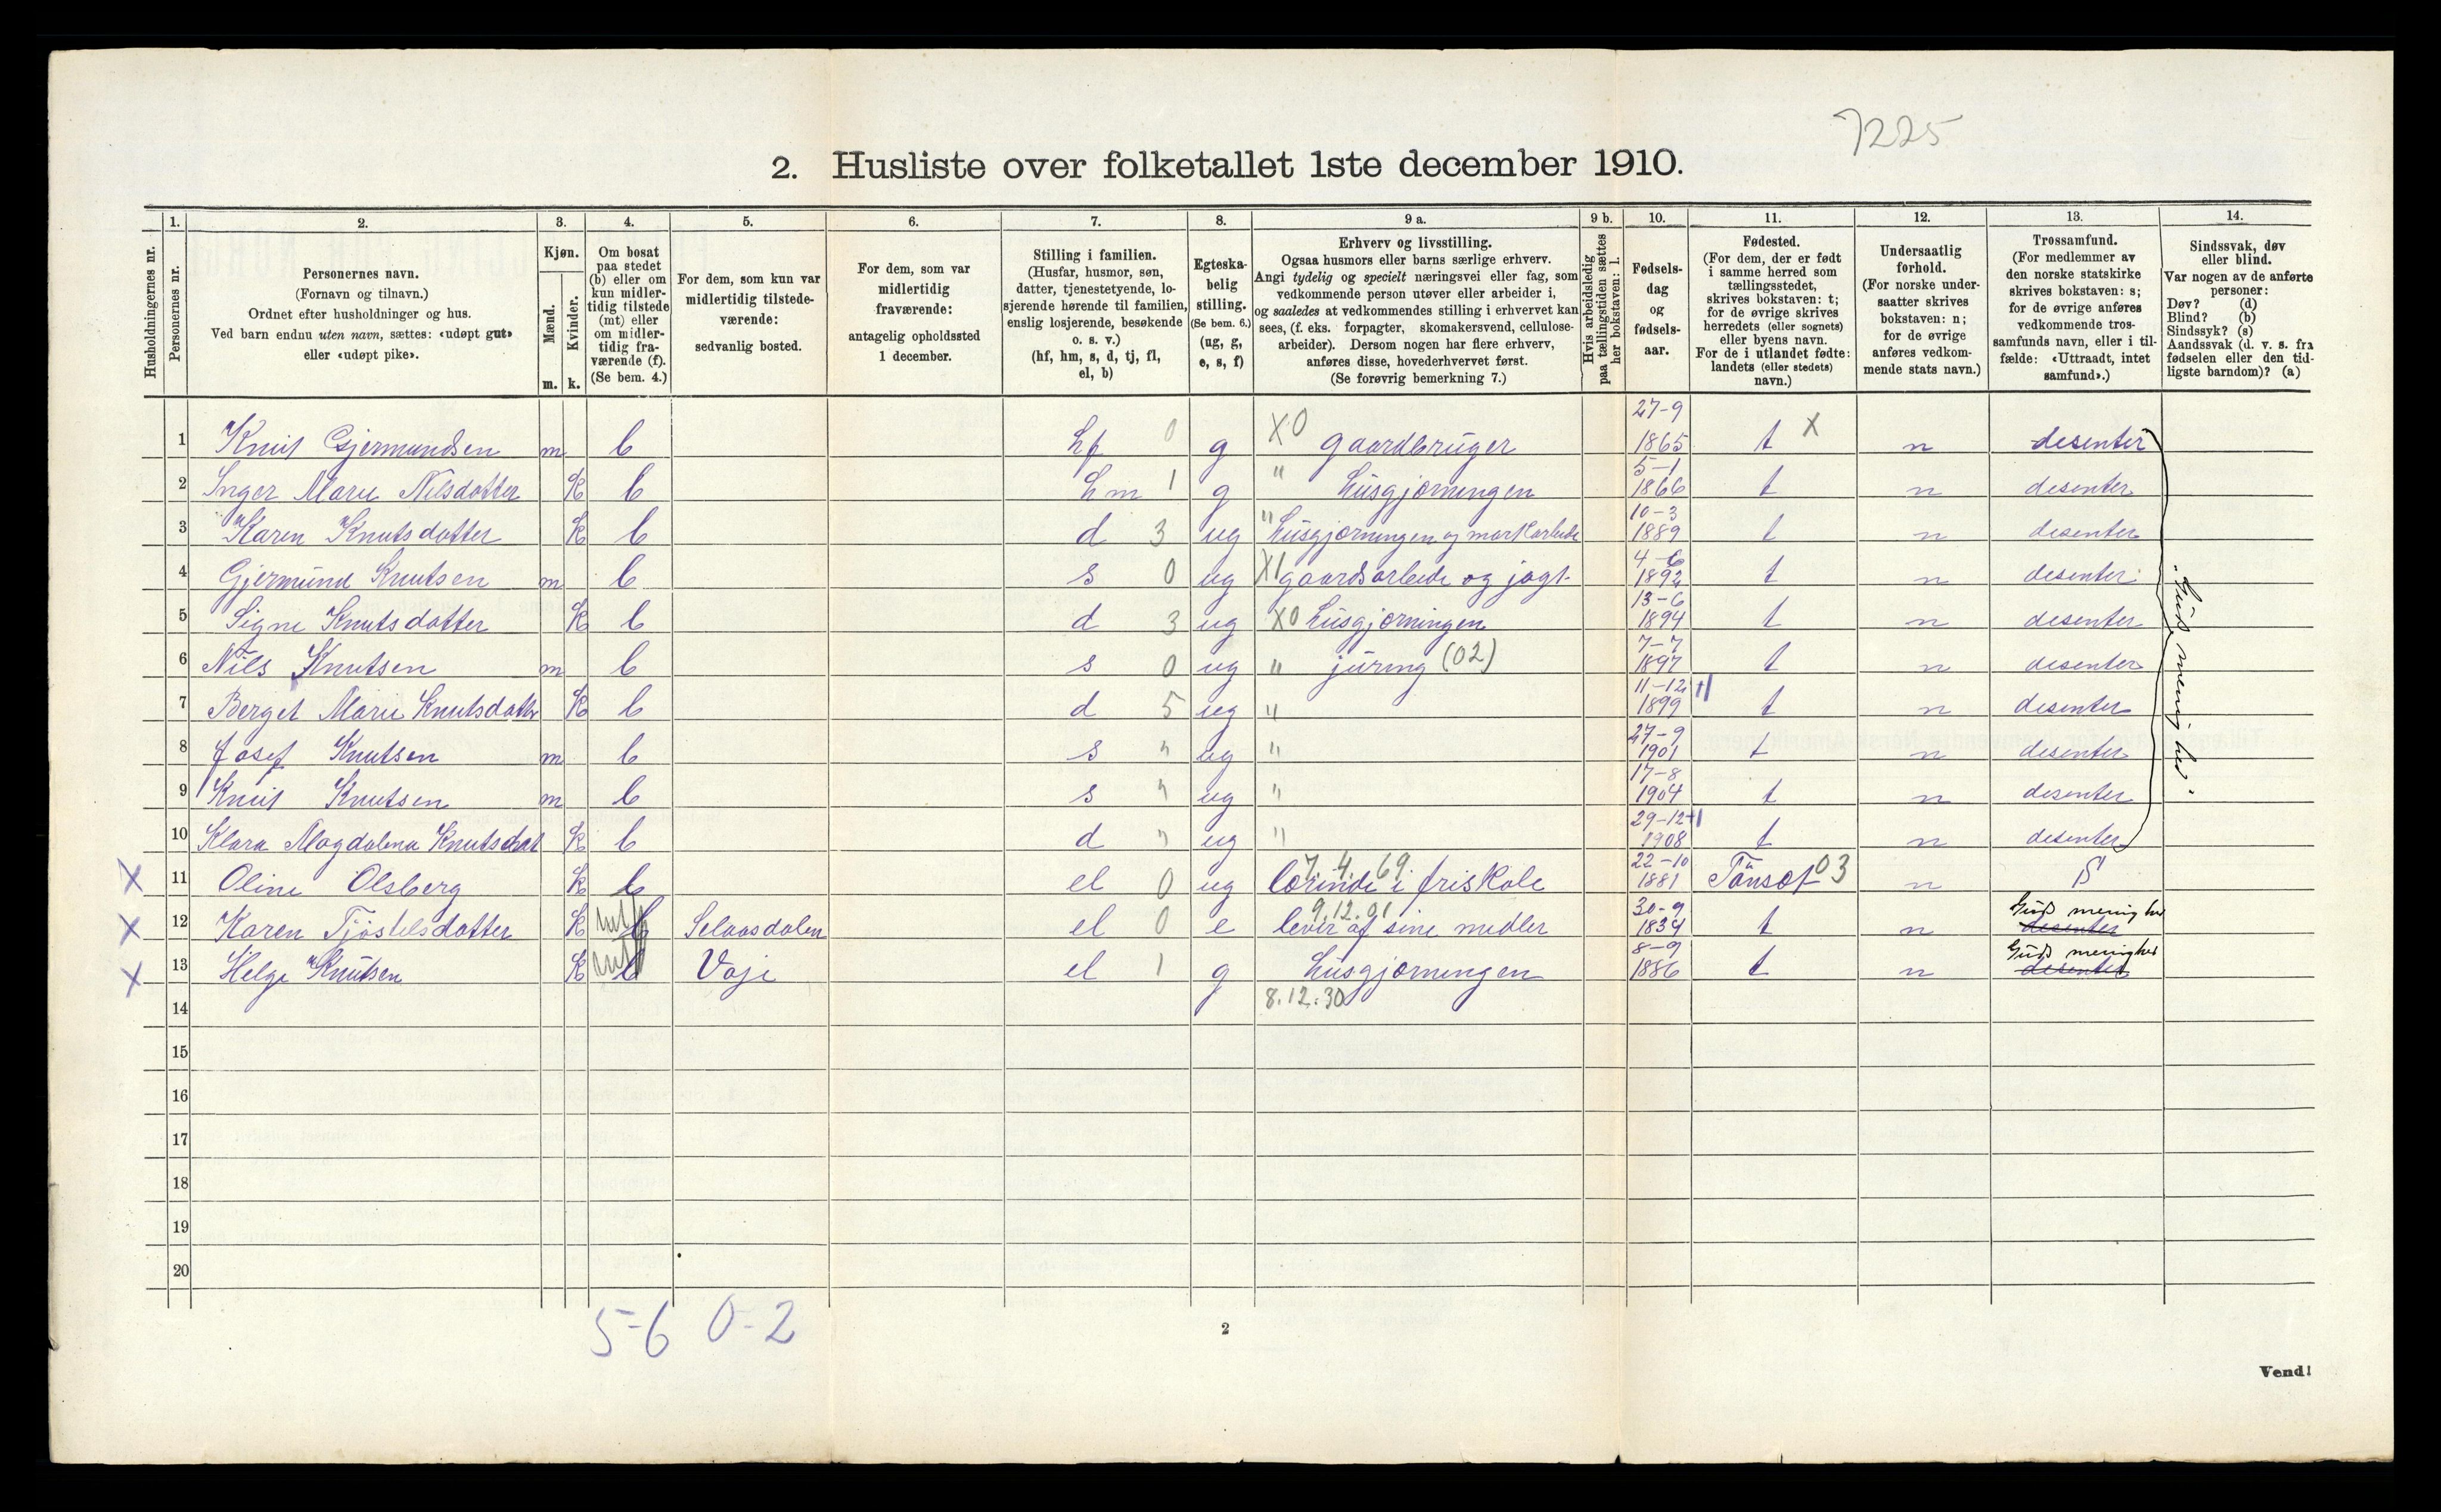 7225
2. Husliste over folketallet 1ste december 1910.
Husholdningernes nr.
1. Personernes nr.
2. Personernes navn.
(Fornavn og tilnavn.)
Ordnet efter husholdninger og hus.
Ved barn endnu uten navn, sættes: «udøpt gut»
eller «udøpt pike».
3. Kjøn.
Mænd. m.
Kvinder. k.
4. Om bosat
paa stedet
(b) eller om
kun midler-
tidig tilstede
(mt) eller
om midler-
tidig fra-
værende (f).
(Se bem. 4.)
5. For dem, som kun var
midlertidig tilstede-
værende:
sedvanlig bosted.
6. For dem, som var
midlertidig
fraværende:
antagelig opholdssted
1 december.
7. Stilling i familien.
(Husfar, husmor, søn,
datter, tjenestetyende, lo-
sjerende hørende til familien,
enslig losjerende, besøkende
o. s. v.)
(hf, hm, s, d, tj, fl,
el, b)
8. Egteska-
belig
stilling.
(Se bem. 6.)
(ug, g,
e, s, f)
9 a. Erhverv og livsstilling.
Ogsaa husmors eller barns særlige erhverv.
Angi tydelig og specielt næringsvei eller fag, som
vedkommende person utøver eller arbeider i,
og saaledes at vedkommendes stilling i erhvervet kan
sees, (f. eks. forpagter, skomakersvend, cellulose-
arbeider). Dersom nogen har flere erhverv,
anføres disse, hovederhvervet først.
(Se forøvrig bemerkning 7.)
9 b. Hvis arbeidsledig
paa tællingstiden sættes
her bokstaven: l.
10. Fødsels-
dag
og
fødsels-
aar.
11. Fødested.
(For dem, der er født
i samme herred som
tællingsstedet,
skrives bokstaven: t;
for de øvrige skrives
herredets (eller sognets)
eller byens navn.
For de i utlandet fødte:
landets (eller stedets)
navn.)
12. Undersaatlig
forhold.
(For norske under-
saatter skrives
bokstaven: n;
for de øvrige
anføres vedkom-
mende stats navn.)
13. Trossamfund.
(For medlemmer av
den norske statskirke
skrives bokstaven: s;
for de øvrige anføres
vedkommende tros-
samfunds navn, eller i til-
fælde: «Uttraadt, intet
samfund».)
14. Sindssvak, døv
eller blind.
Var nogen av de anførte
personer:
Døv? (d)
Blind? (b)
Sindssyk? (s)
Aandssvak (d. v. s. fra
fødselen eller den tid-
ligste barndom)? (a)
1 Knut Gjermundsen m b hf 0 g X0 gaardbruger 27-9 1865 t X n desenter
2 Inger Marie Nilsdotter K b hm 1 g " husgjørningen 5-1 1866 t n desenter
3 Karen Knutsdotter K b d 3 ug " husgjørningen og markarbeide 10-3 1889 t n desenter
4 Gjermund Knutsen m b s 0 ug X1 gaardsarbeide og jagt. 4-6 1892 t n desenter
5 Signe Knutsdotter K b d 3 ug X0 husgjørningen 13-6 1894 t n desenter
6 Nils Knutsen m b s 0 ug " (02) 7-7 1897 t n desenter
7 Berget Marie Knutsdotter K b d 5 ug " 11-12 1899 t n desenter
8 Josef Knutsen m b s " ug " 27-9 1901 t n desenter
9 Knut Knutsen m b s " ug " 17-8 1904 t n desenter
10 Klara Magdalena Knutsdat K b d " ug " 29-12 1908 t n desenter
Guds menighed
X 11 Oline Olsberg K b el 0 ug 7.4.69 lærinde i friskole 22-10 1881 03 n S
X 12 Karen Tjøstelsdotter K mt b Selaasdalen el 0 e 9.12.01 lever af sine midler 30-9 1834 t n Guds menighed desenter
X 13 Helge Knutsen K mt b Voje el 1 g husgjørningen 8-9 1886 t n Guds menighed desenter
8.12.30
14
15
16
17
18
19
20
5-6 0-2
2
Vend!